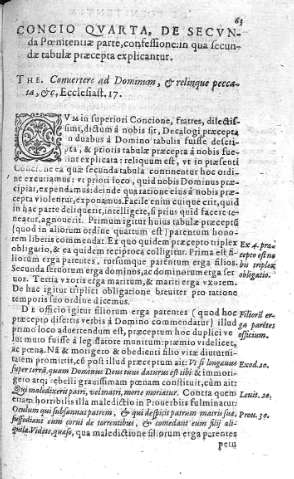 63
CONCIO QVARTA, DE SECVN-
da Pœnitentiæ parte, confessione: in qua secun-
dæ tabulæ præcepta explicantur.
THE. Convertere ad Dominum, & relinque pecca-
ta, &c, Ecclesiast. 17.
QVM in superiori Concione, fratres, dilectis-
simi, dictum à nobis sit, Decalogi præcepta
in duabus à Domino tabulis fuisse descri-
pta, & prioris tabulæ præcepta à nobis fue-
rint explicata: reliquum est, vt in præsenti
Concione ea quæ secunda tabula continentur hoc ordi-
ne exequamur: vt priori loco, quid nobis Dominus præ-
cipiat, expendamus: deinde qua ratione eius à nobis præ-
cepta violentur, exponamus. Facile enim cuique erit, quid
in hac parte deliquerit, intelligere, si prius quid facere te-
neatur, agnouerit. Primum igitur huius tabulæ præceptũ
(quod in aliorum ordine quartum est) parentum hono-
rem liberis commendat: Ex quo quidem præcepto triplex
obligatio, & ea quidem reciproca colligitur. Prima est fi-
liorum erga parentes, rursumque parentum erga filios.
Secunda seruorum erga dominos, ac dominorum erga ser-
uos. Tertia vxoris erga maritum, & mariti erga vxorem.
De hac igitur triplici obligatione breuiter pro ratione
temporis suo ordine dicemus.
Ex 4. præ-
cepto est no
bis triplex
obligatio.
DE officio igitur filiorum erga parentes (quod hoc
præcepto disertis verbis à Domino commendatur) illud
primo loco aduertendum est, præceptum hoc duplici ve-
lut muto fuisse à legislatore munitum, præmio videlicet,
ac pœna. Nã & morigero & obedienti filio vitæ diuturni-
tatem promisit, cùm post illud præceptum ait: Vt sis longæuus
super terrã, quam Dominus Deus tuus daturus est tibi. & immori-
gero atque rebelli grauissimam pœnam constituit, cùm ait:
Qui maledixerit patri, vel matri, morte moriatur. Contra quem
etiam horribilis illa maledictio in Prouerbiis fulminatur:
Oculum qui subsannat patrem, & qui despicit partum matris suæ,
suffodiant eum corui de torrentibus, & comedant eum filij aqui-
læ. Videte, quæso, qua maledictione filiorum erga parentes
Filiorũ er-
ga parẽtes
officium.
Exod. 20.
Leuit. 20.
Prou. 30.
petu